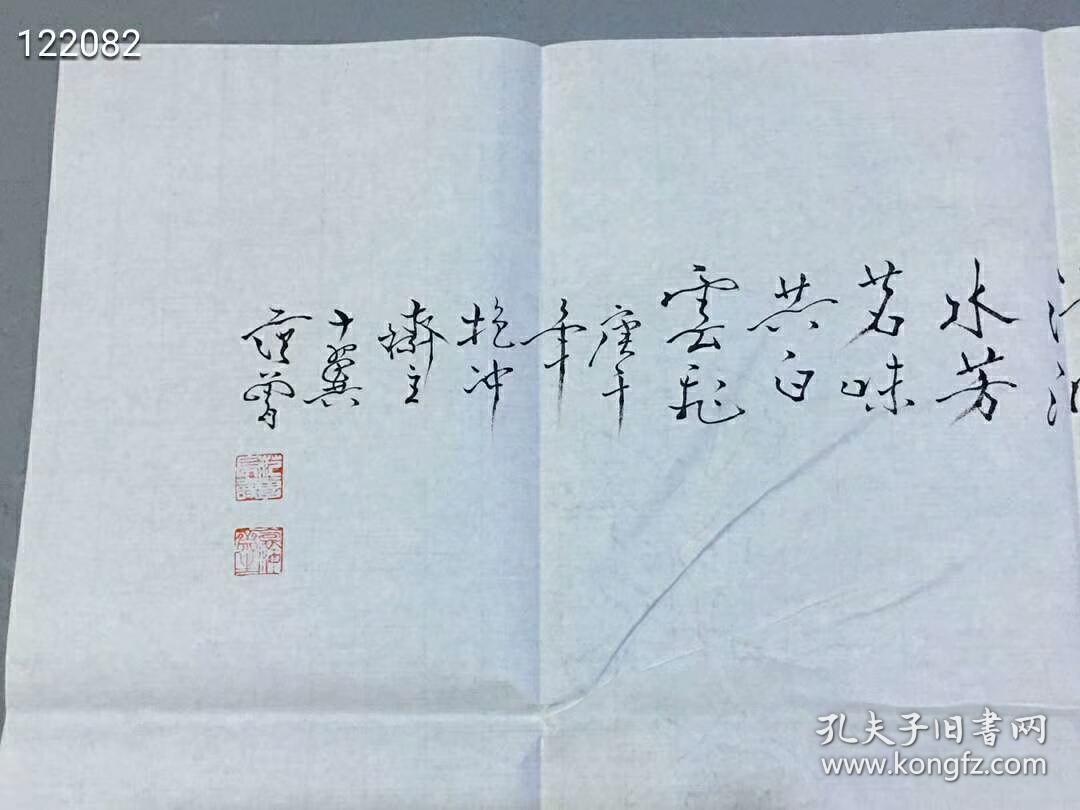 122082
水芳
茗味
共白
雲飛
庚午
年
抱沖
齋主
十翼
范曾
孔夫子旧书网
www.kongfz.com